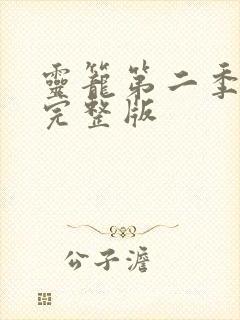 靈籠第二季
完整版
公子澹